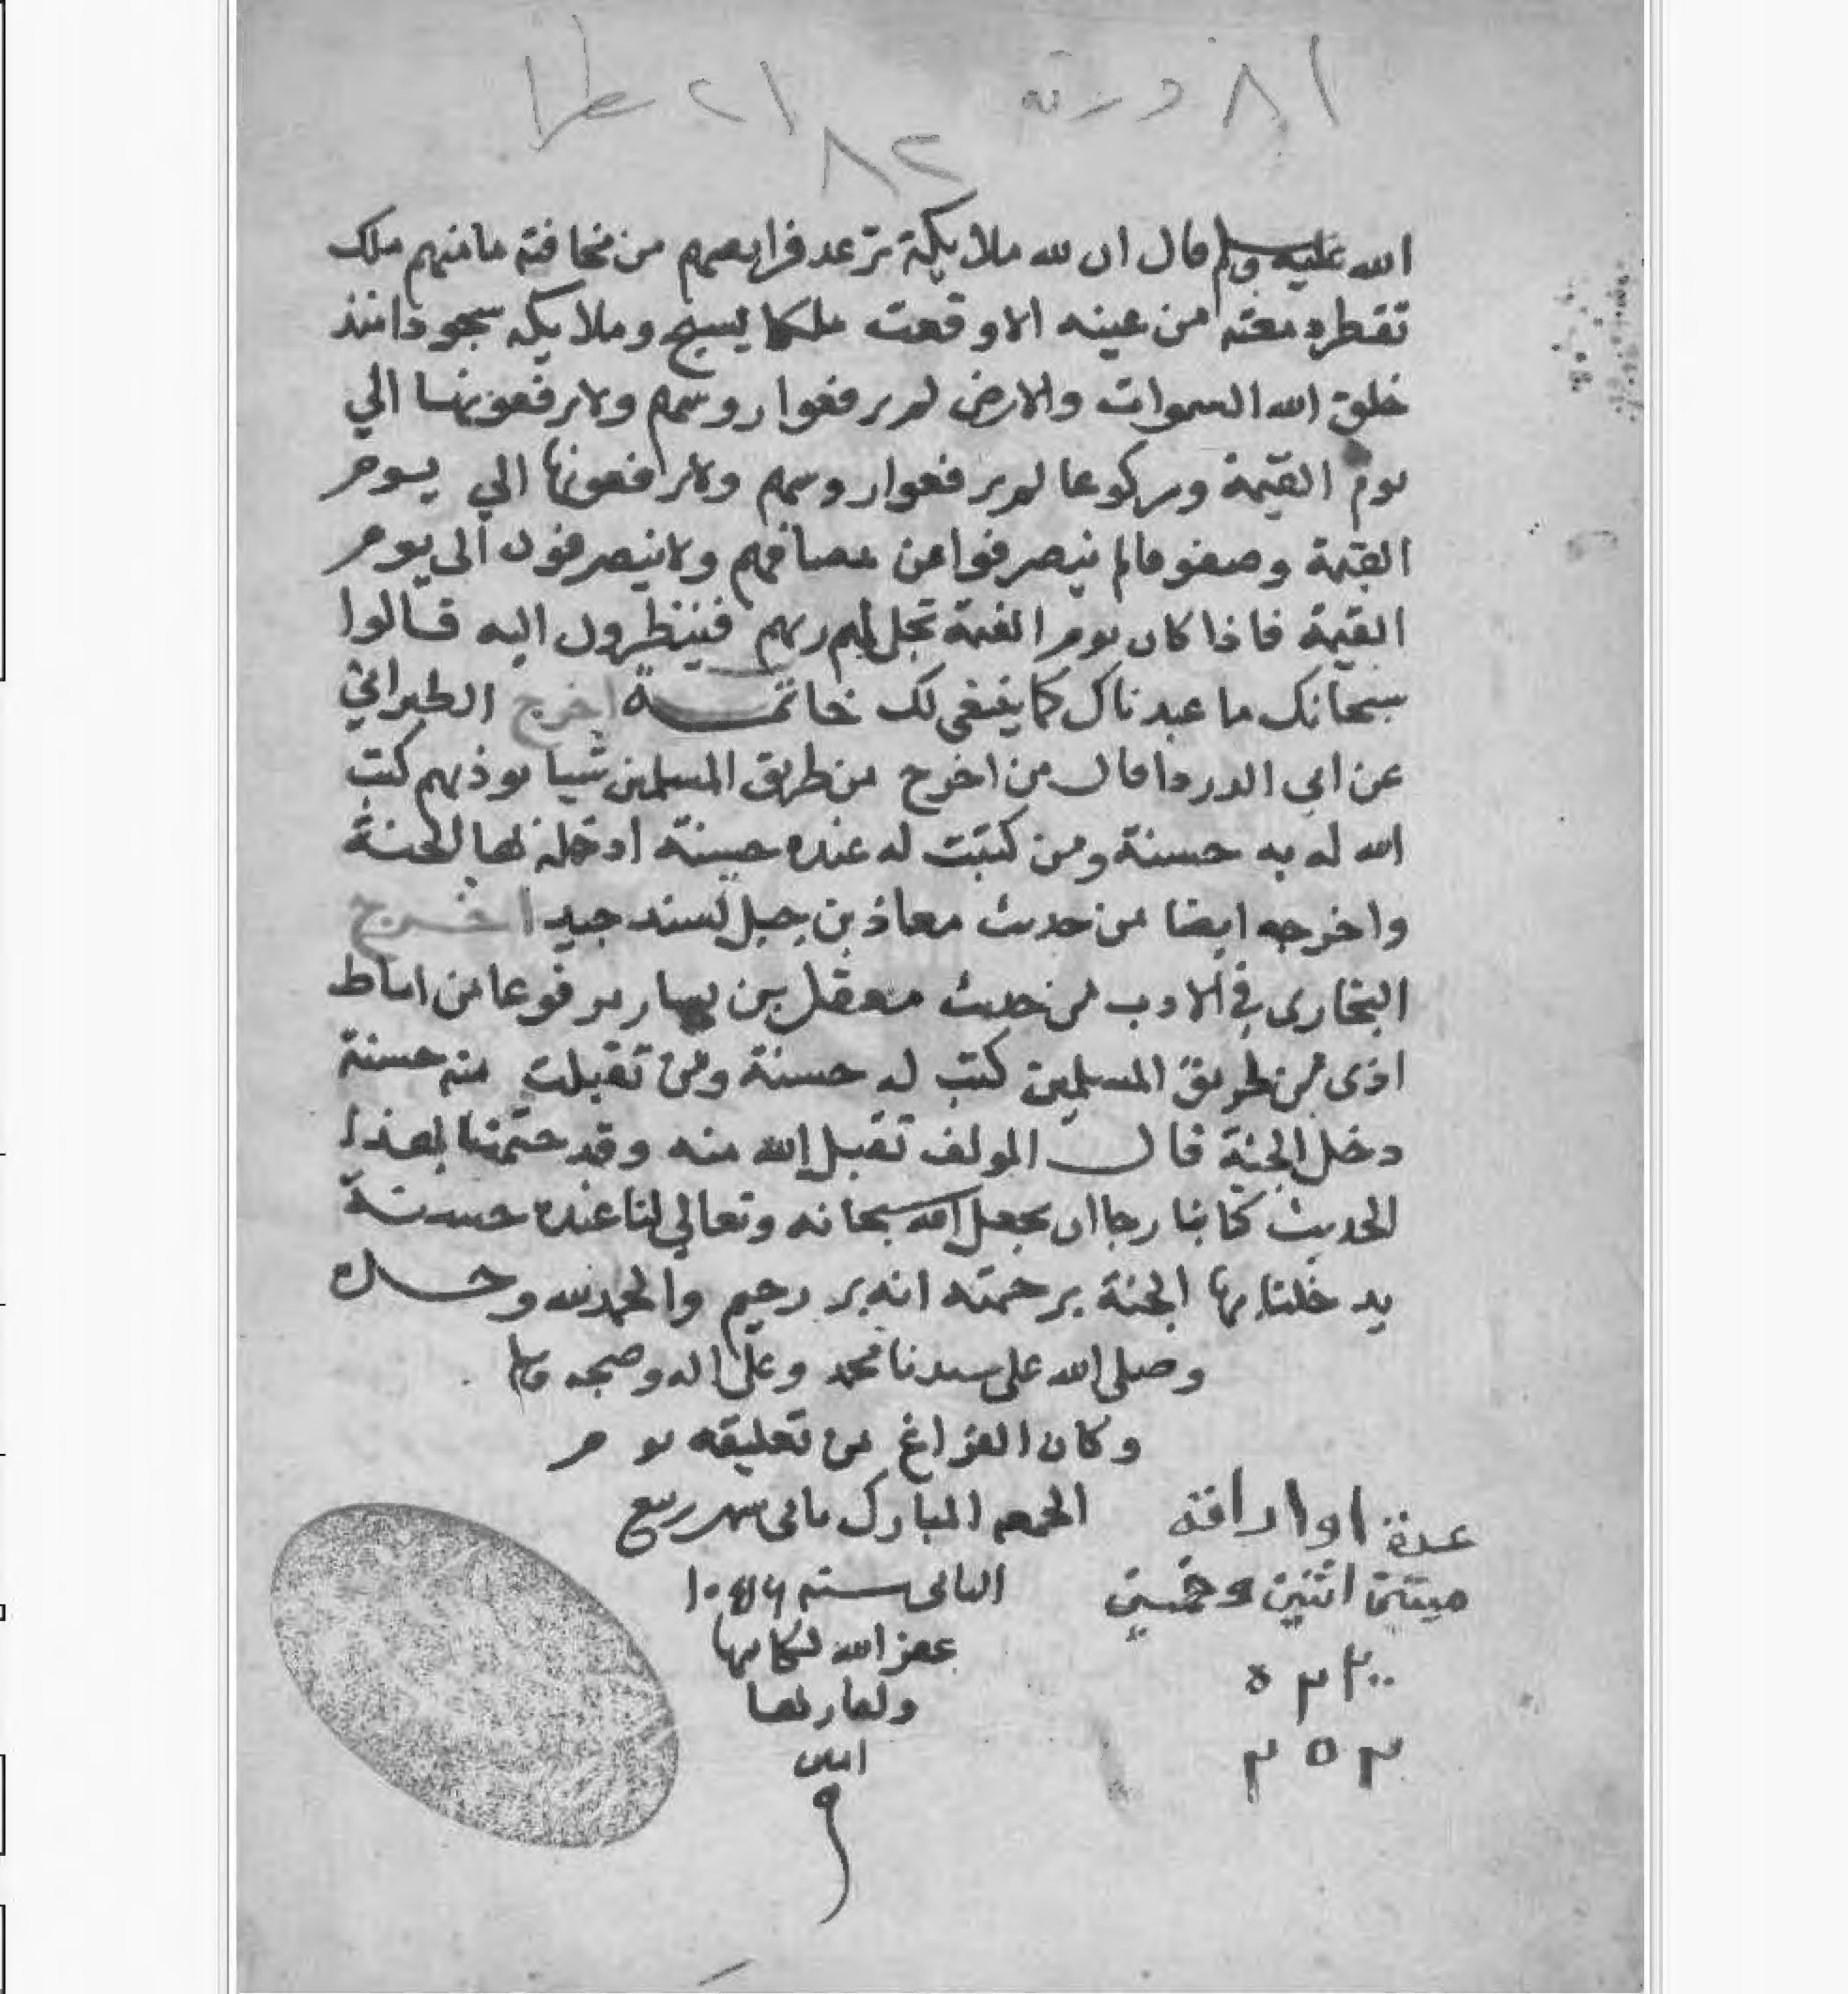 ٨١ ورقة ٢١ سطرا
٨٢
الله عليه وسلم قال ان لله ملايكة ترعد فرايصهم من مخافته ما منهم ملك
تقطر دمعته من عينه الا وقعت ملكا يسبح وملايكه سجودا منذ
خلق الله السموات والارض لم يرفعوا روسهم ولا يرفعونها الي
يوم القيمة وركوعا لم يرفعوا روسهم ولا يرفعونها الي يوم
القيمة وصفوفا لم ينصرفوا عن مصافهم ولا ينصرفون الى يوم
القيمة فاذا كان يوم القيمة تجلى لهم ربهم فينظرون اليه قالوا
سبحانك ما عبدناك كما ينبغي لك خاتمة اخرج الطبراني
عن ابي الدردا قال من اخرج من طريق المسلمين شيا يوذيهم كتب
الله له به حسنة ومن كتبت له عنده حسنة ادخله بها الجنة
واخرجه ايضا من حديث معاذ بن جبل بسند جيد اخرج
البخاري في الادب من حديث معقل بن يسار مرفوعا من اماط
اذى من طريق المسلمين كتب له حسنة ومن تقبلت منه حسنة
دخل الجنة قال المولف تقبل الله منه وقد ختمنا بهذا
الحديث كتابنا رجا ان يجعل الله سبحانه وتعالي لنا عنده حسنة
يدخلنا بها الجنة برحمته انه بر رحيم والحمد لله وحده
وصلى الله على سيدنا محمد وعلى اله وصحبه وسلم
وكان الفراغ من تعليقه يوم
الجمعه المبارك ثاني شهر ربيع
الثاني سنة
غفر الله لكاتبها
ولقاريها
امين
عدة اوراقه
ميتين اثنين وخمسين
٢٥٢